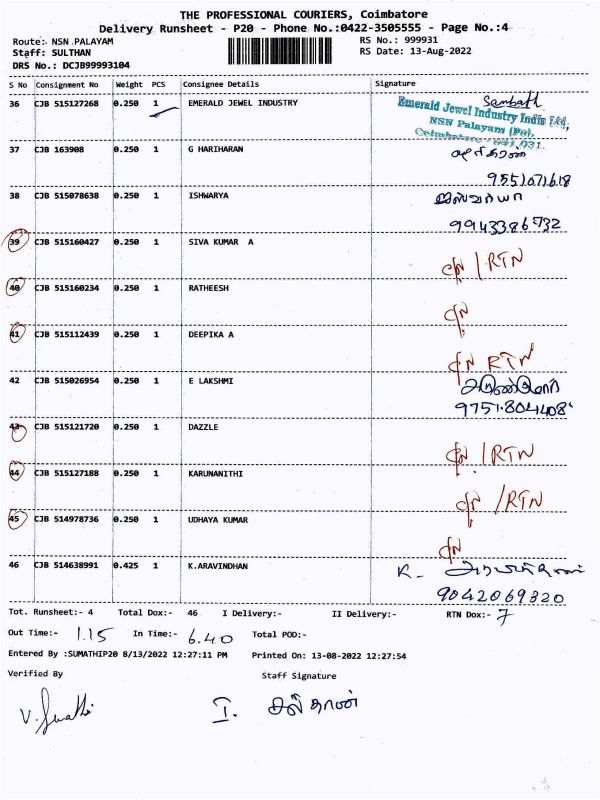 THE PROFESSIONAL COURIERS, Coimbatore
Delivery Runsheet - P20 - Phone No.:0422-3505555 - Page No.:4
Route:- NSN PALAYAM RS No.: 999931
Staff: SULTHAN RS Date: 13-Aug-2022
DRS No.: DCJB99993104
S No Consignment No Weight PCS Consignee Details Signature
36 CJB 515127268 0.250 1 EMERALD JEWEL INDUSTRY Sambath
Emerald Jewel Industry India Ltd,
NSN Palayam (Po),
Coimbatore - 641 031.
37 CJB 163908 0.250 1 G HARIHARAN
9551071618
38 CJB 515078638 0.250 1 ISHWARYA ஐஸ்வர்யா
9943386732
39 CJB 515160427 0.250 1 SIVA KUMAR A
C/N / RTN
40 CJB 515160234 0.250 1 RATHEESH
C/N
41 CJB 515112439 0.250 1 DEEPIKA A
C/N RTN
42 CJB 515026954 0.250 1 E LAKSHMI
9751804408
43 CJB 515121720 0.250 1 DAZZLE
C/N / RTN
44 CJB 515127188 0.250 1 KARUNANITHI
C/N / RTN
45 CJB 514978736 0.250 1 UDHAYA KUMAR
C/N
46 CJB 514638991 0.425 1 K.ARAVINDHAN K.
9042069320
Tot. Runsheet:- 4 Total Dox:- 46 I Delivery:- II Delivery:- RTN Dox:- 7
Out Time:- 1.15 In Time:- 6.40 Total POD:-
Entered By :SUMATHIP20 8/13/2022 12:27:11 PM Printed On: 13-08-2022 12:27:54
Verified By Staff Signature